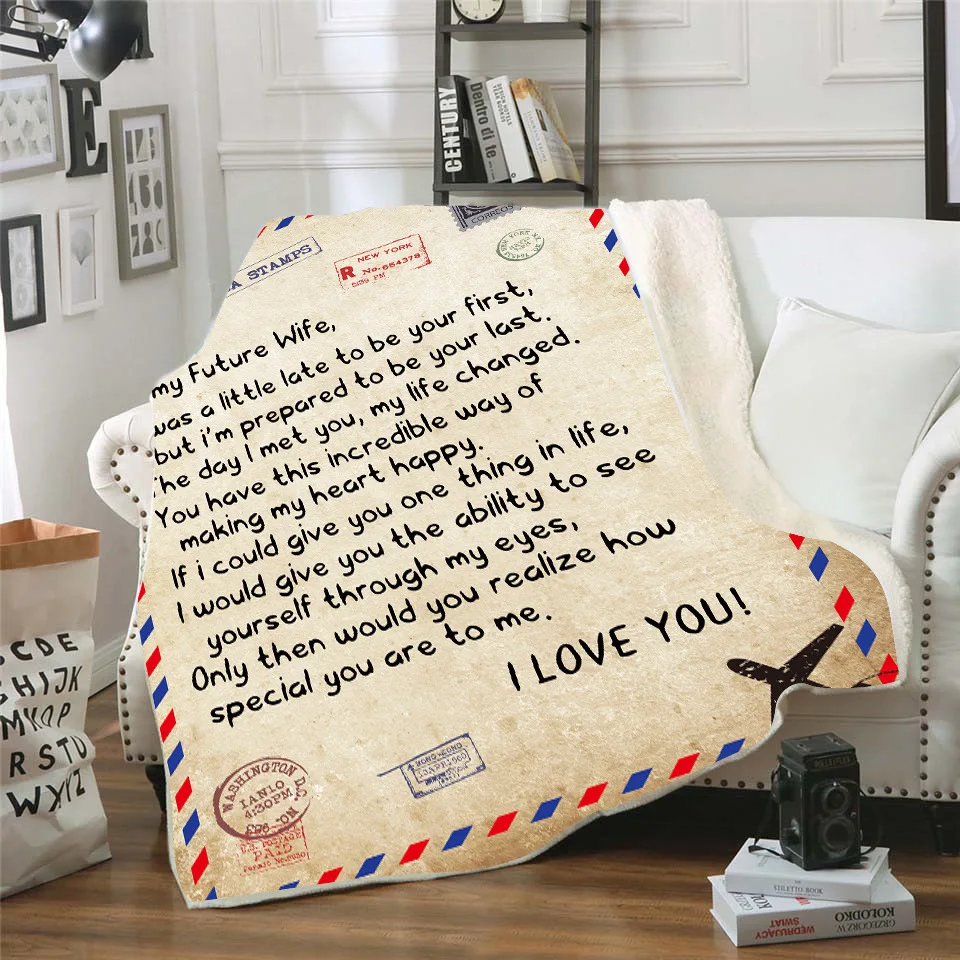 E
CENTURY
Dentro di te
DESIGN HOTELS
YEAR BOOK
A STAMPS
NEW YORK
R No. 654379
CORREOS
my Future Wife,
was a little late to be your first,
but i'm prepared to be your last.
he day I met you, my life changed.
You have this incredible way of
making my heart happy.
If i could give you one thing in life,
I would give you the ability to see
yourself through my eyes,
Only then would you realize how
special you are to me.
I LOVE YOU!
WASHINGTON D.C.
4:30PM
U.S. POSTAGE
PAID
CDE
GHIJK
RSTU
WXYZ
ROLLEIFLEX
BOOK
GRZEGORZ W
KOŁODKO
WĘDRUJĄCY
ŚWIAT